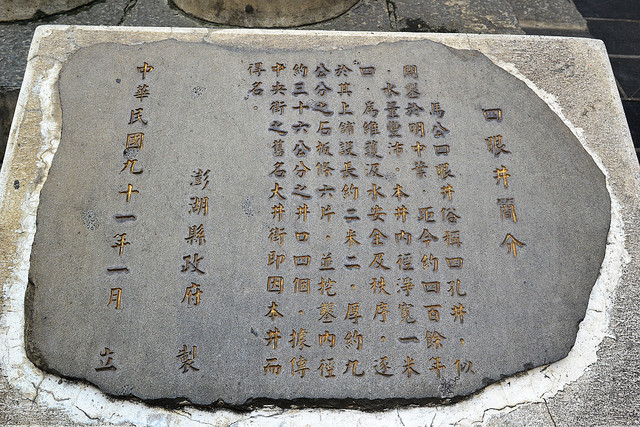 四眼井簡介
馬公四眼井俗稱四孔井,似
開鑿於明中葉,距今約四百餘年
,水量豐沛。本井內徑淨寬一米
四,為維護汲水安全及秩序,遂
於其上舖設長約二米二,厚約九
公分之石板條六片,並挖鑿內徑
約三十六公分之井口四個。據傳
中央街之舊名大井街即因本井而
得名。
澎湖縣政府 製
中華民國九十一年一月 立